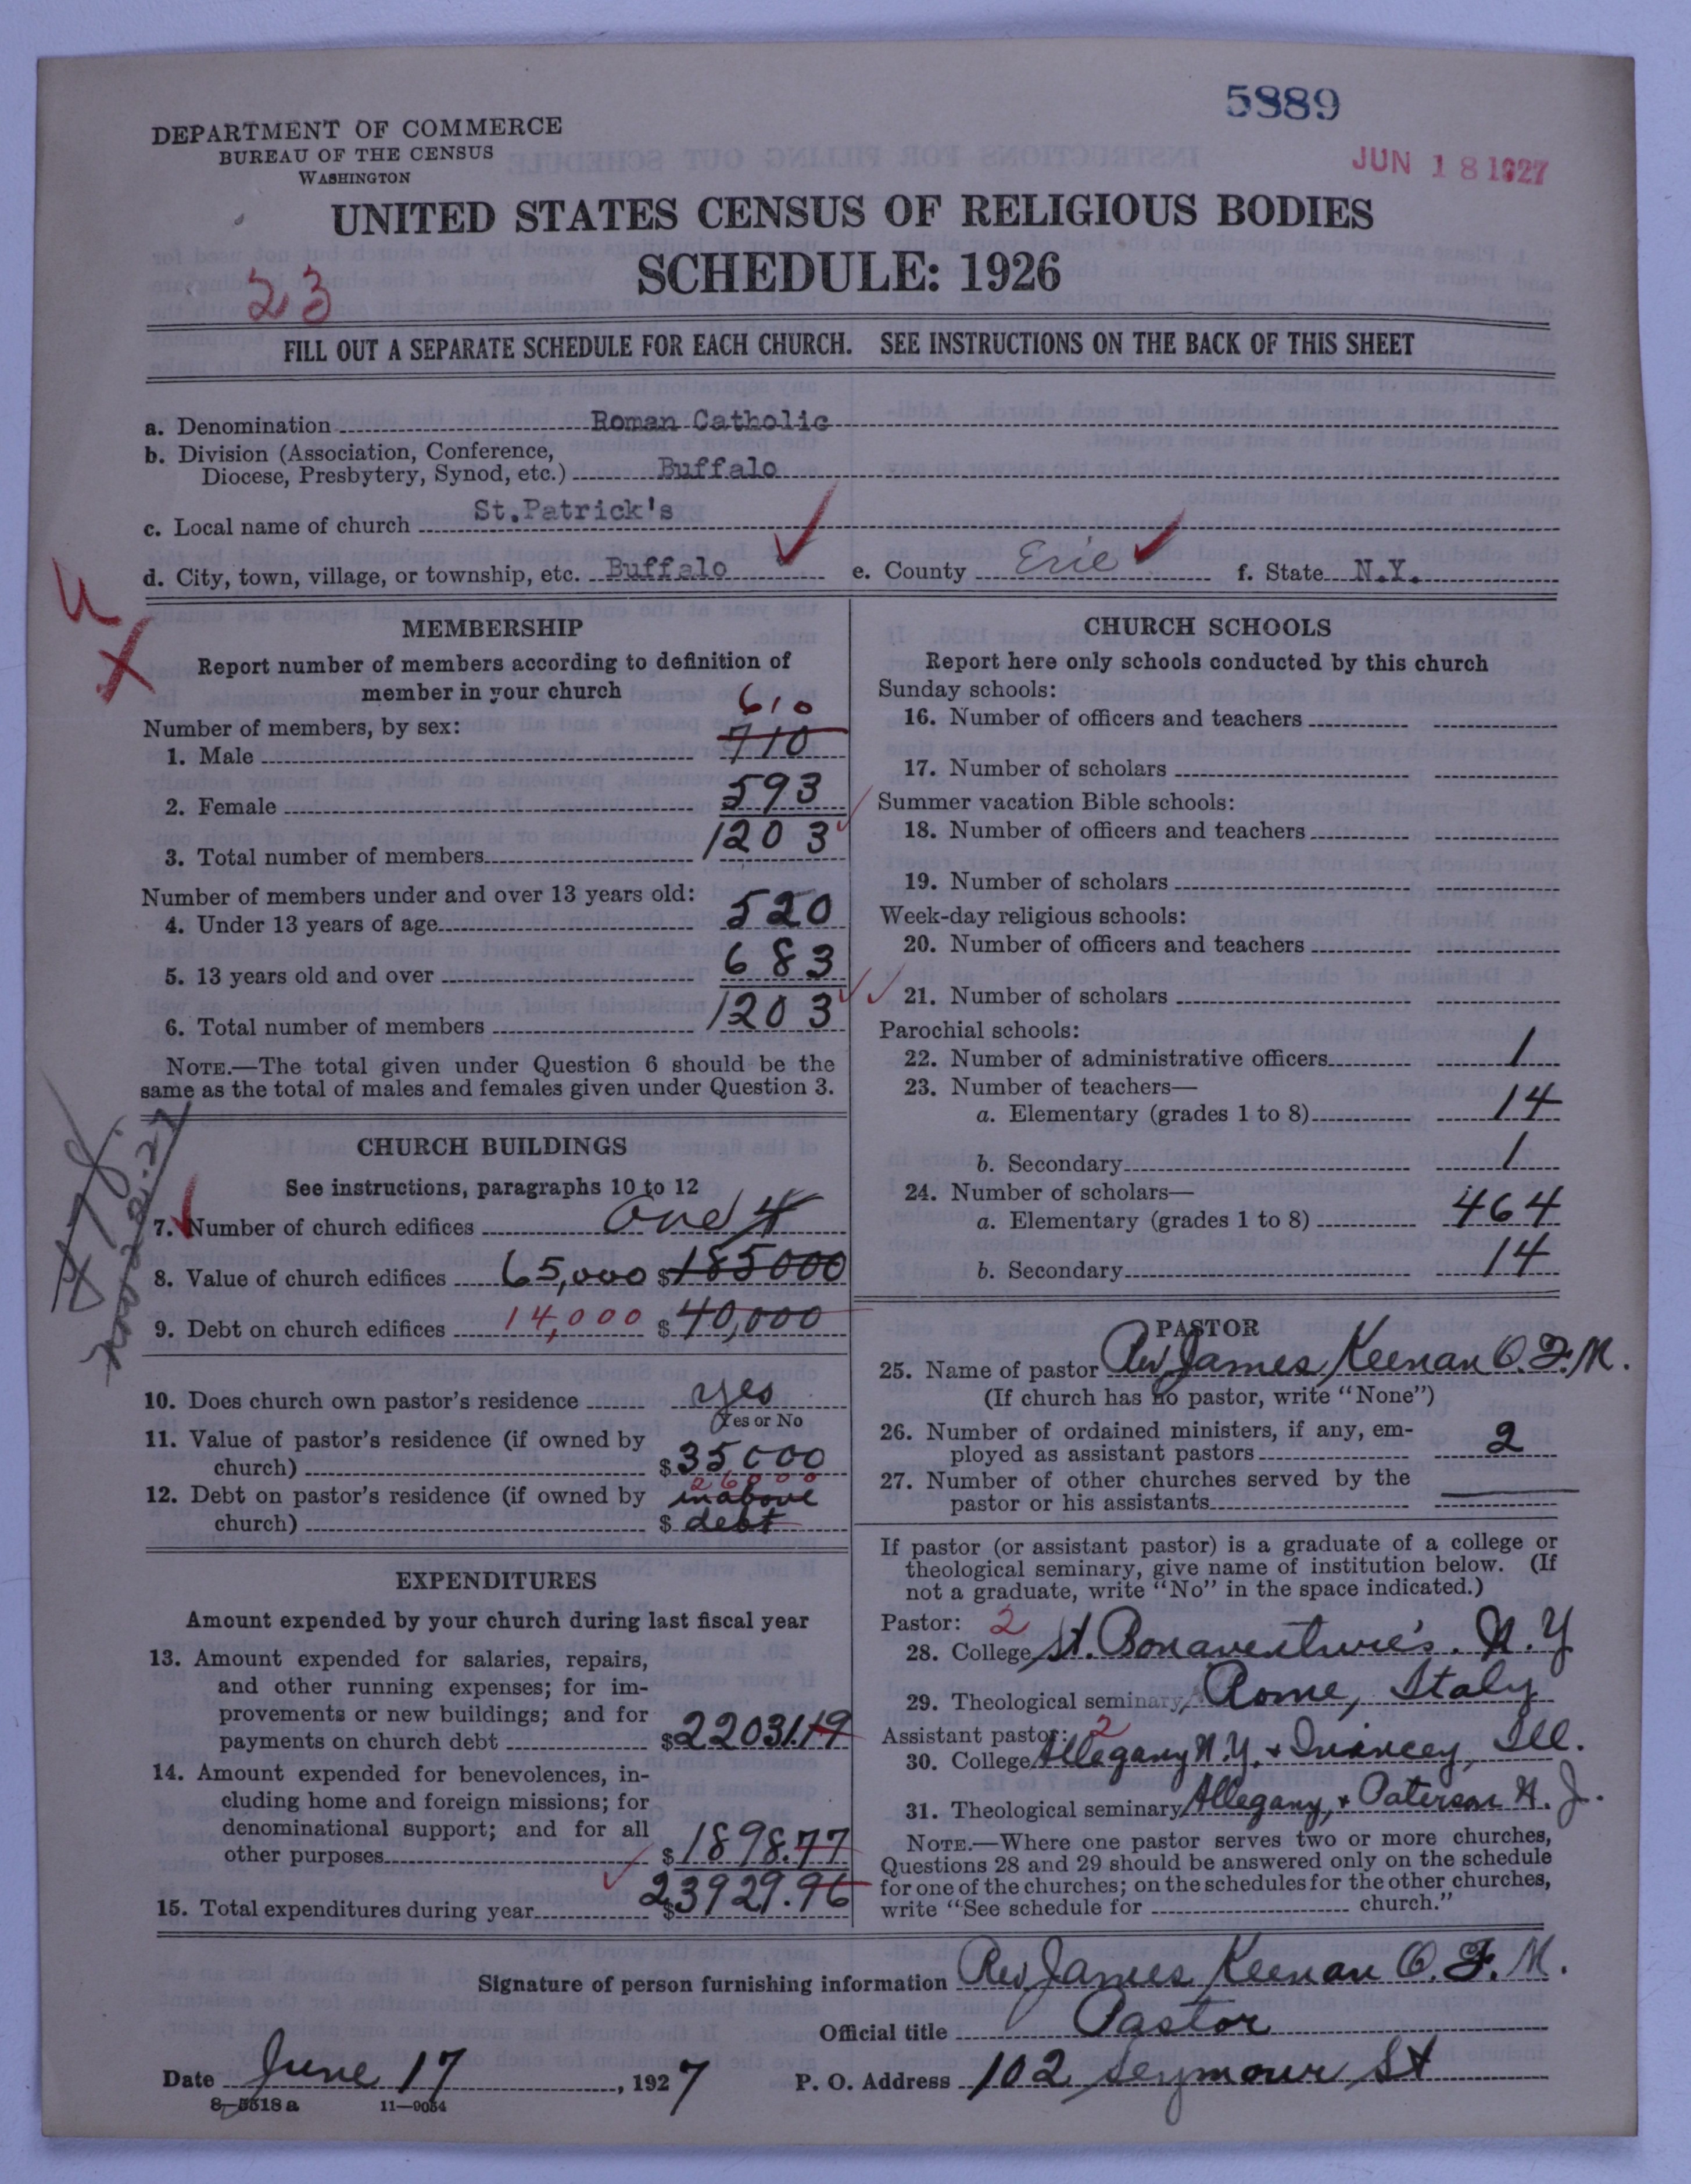 5889
JUN 18 1927
DEPARTMENT OF COMMERCE
BUREAU OF THE CENSUS
WASHINGTON
UNITED STATES CENSUS OF RELIGIOUS BODIES
SCHEDULE: 1926
23
FILL OUT A SEPARATE SCHEDULE FOR EACH CHURCH. SEE INSTRUCTIONS ON THE BACK OF THIS SHEET
a. Denomination Roman Catholic
b. Division (Association, Conference,
Diocese, Presbytery, Synod, etc.) Buffalo
c. Local name of church St.Patrick's
d. City, town, village, or township, etc. Buffalo e. County Erie f. State N.Y.
MEMBERSHIP
Report number of members according to definition of
member in your church
Number of members, by sex:
610
1. Male 710
2. Female 593
3. Total number of members 1203
Number of members under and over 13 years old:
4. Under 13 years of age 520
5. 13 years old and over 683
6. Total number of members 1203
NOTE.—The total given under Question 6 should be the
same as the total of males and females given under Question 3.
CHURCH BUILDINGS
See instructions, paragraphs 10 to 12
7. Number of church edifices One 4
8. Value of church edifices 65,000 $185000
9. Debt on church edifices 14,000 $40,000
10. Does church own pastor's residence yes
Yes or No
11. Value of pastor's residence (if owned by
church) $35000
26000
12. Debt on pastor's residence (if owned by in above
church) $ debt
EXPENDITURES
Amount expended by your church during last fiscal year
13. Amount expended for salaries, repairs,
and other running expenses; for im-
provements or new buildings; and for
payments on church debt $22031.19
14. Amount expended for benevolences, in-
cluding home and foreign missions; for
denominational support; and for all
other purposes $1898.77
15. Total expenditures during year $23929.96
CHURCH SCHOOLS
Report here only schools conducted by this church
Sunday schools:
16. Number of officers and teachers
17. Number of scholars
Summer vacation Bible schools:
18. Number of officers and teachers
19. Number of scholars
Week-day religious schools:
20. Number of officers and teachers
21. Number of scholars
Parochial schools:
22. Number of administrative officers 1
23. Number of teachers—
a. Elementary (grades 1 to 8) 14
b. Secondary 1
24. Number of scholars—
a. Elementary (grades 1 to 8) 464
b. Secondary 14
PASTOR
25. Name of pastor Rev James Keenan O.F.M.
(If church has no pastor, write "None")
26. Number of ordained ministers, if any, em-
ployed as assistant pastors 2
27. Number of other churches served by the
pastor or his assistants
If pastor (or assistant pastor) is a graduate of a college or
theological seminary, give name of institution below. (If
not a graduate, write "No" in the space indicated.)
Pastor: 2
28. College St. Bonaventure's. N.Y
29. Theological seminary, Rome, Italy
Assistant pastor: 2
30. College Allegany N.Y. + Quincey, Ill.
31. Theological seminary Allegany, + Paterson N.J.
NOTE.—Where one pastor serves two or more churches,
Questions 28 and 29 should be answered only on the schedule
for one of the churches; on the schedules for the other churches,
write "See schedule for church."
Signature of person furnishing information Rev James Keenan O.F.M.
Official title Pastor
Date June 17, 1927 P. O. Address 102 Seymour St
8—5518 a 11—9054